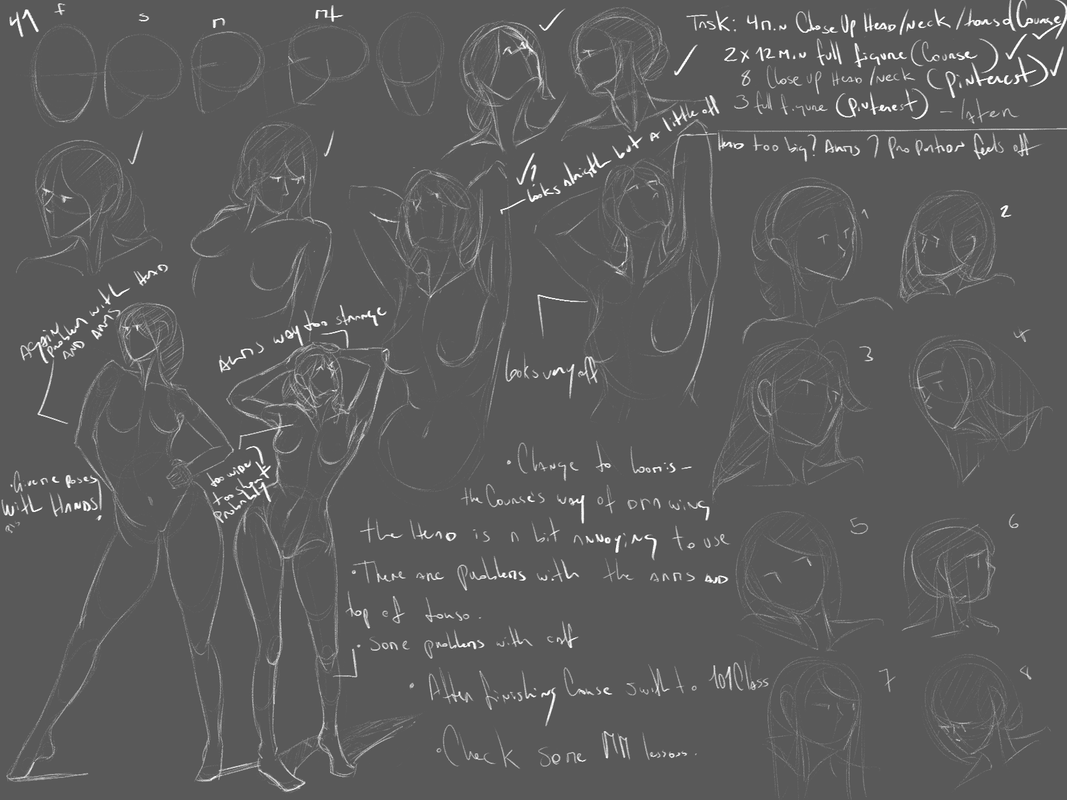 41
f
s
n
Task: 4 Min Close Up Head/Neck/torso (Course)
2 x 12 Min full figure (Course)
8 Close up Head/Neck (Pinterest)
3 full figure (Pinterest) - later
Head too big? Arms? Proportion feels off
looks alright but a little off
Again
problem with Head
AND ARMS
Arms way too strange
looks very off
too wide?
too short
probably
with HANDS!
1
2
3
4
5
6
7
8
• Change to Loomis -
the Course's way of drawing
the Head is a bit annoying to use
• There are problems with the arms AND
top of torso.
• Some problems with calf
• After finishing Course switch to 101Class
• Check some MM lessons.